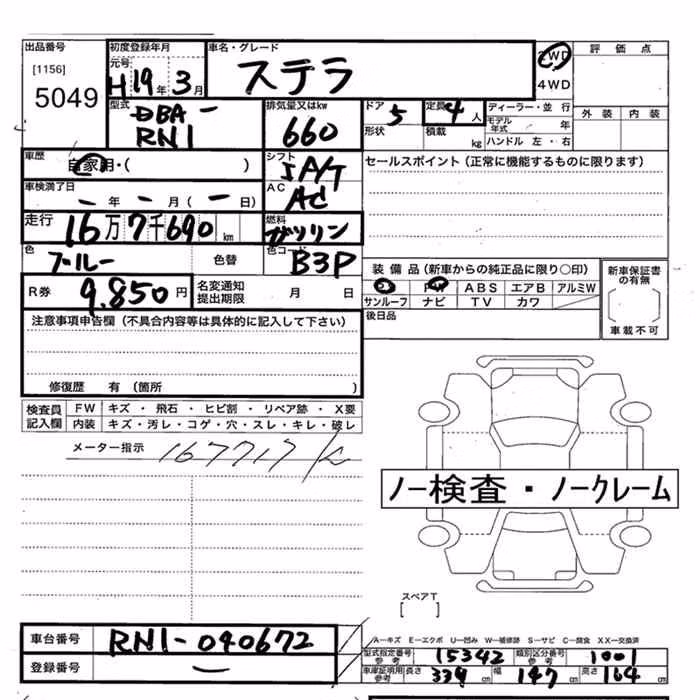 出品番号 [1156] 5049
初度登録年月 元号 H19年 3月
車名・グレード ステラ
2WD
4WD
評価点
外装 内装
型式 DBA- RN1
排気量又はkw 660
ドア 5
形状
定員 4人
積載 kg
ディーラー・並行
モデル年式 年
ハンドル 左・右
車歴 自家用・( )
シフト IA/T
セールスポイント(正常に機能するものに限ります)
車検満了日 ー年ー月(ー日)
AC AC
走行 16万7千690km
燃料 ガソリン
色 ブルー 色替
色コード B3P
R券 9.850円
名変通知提出期限 月 日
装備品(新車からの純正品に限り○印)
PS PW ABS エアB アルミW
サンルーフ ナビ TV カワ
新車保証書の有無
車載不可
後日品
注意事項申告欄(不具合内容等は具体的に記入して下さい)
修復歴 有(箇所 )
検査員記入欄 FW キズ・飛石・ヒビ割・リペア跡・X要
内装 キズ・汚レ・コゲ・穴・スレ・キレ・破レ
メーター指示 167717k
ノー検査・ノークレーム
スペアT
[ ]
車台番号 RN1-040672
登録番号 ー
A―キズ E―エクボ U―凹み W―補修跡 S―サビ C―腐食 XX―交換済
型式指定番号参考 15342 類別区分番号参考 1001
車庫証明用参考 長さ 339cm 幅 147cm 高さ 164cm